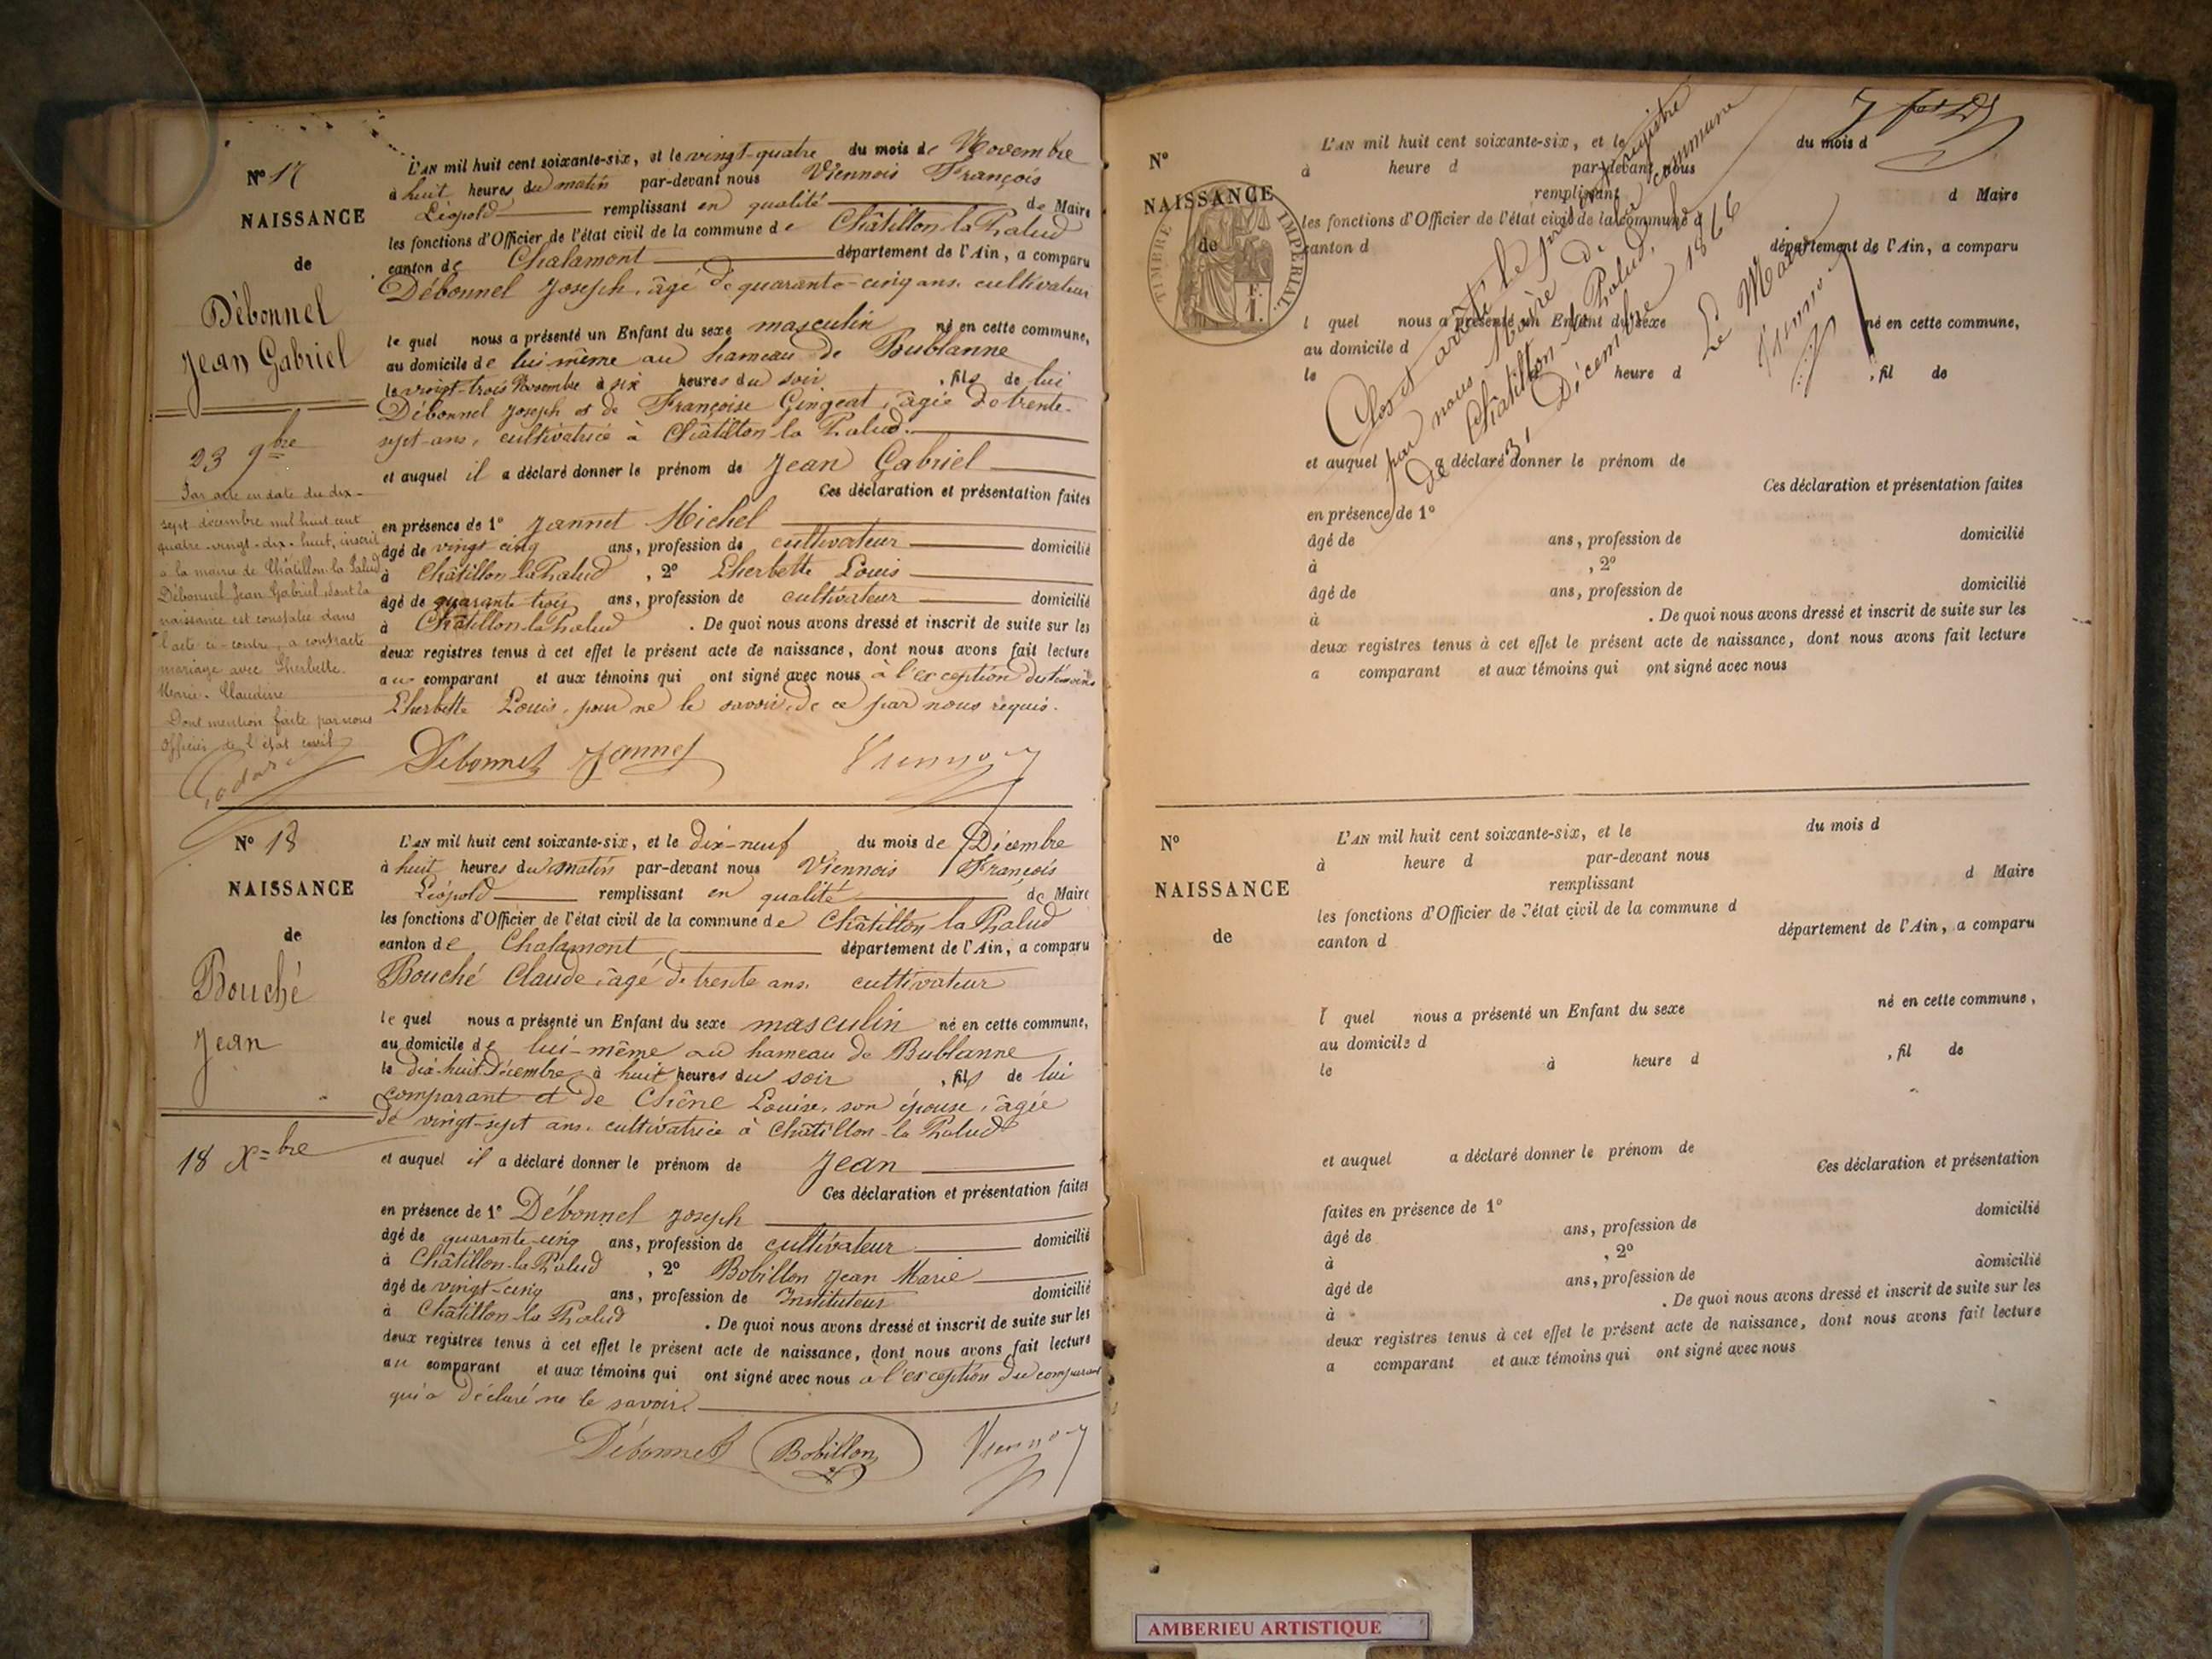 N° 17
NAISSANCE
de
Débonnel
Jean Gabriel
23 9bre
Par acte en date du dix-
sept décembre mil huit cent
quatre-vingt-dix-huit, inscrit
a la mairie de Châtillon-la-Palud
Débonnel Jean Gabriel, dont la
naissance est constatée dans
l'acte ci-contre, a contracté
mariage avec Lherbette
Marie-Claudine
Dont mention faite par nous
officier de l'état civil
L'AN mil huit cent soixante-six, et le vingt-quatre du mois de Novembre
à huit heures du matin par-devant nous Viennois François
Léopold remplissant en qualité de Maire
les fonctions d'Officier de l'état civil de la commune de Châtillon la Palud
canton de Chalamont département de l'Ain, a comparu
Débonnel Joseph, âgé de quarante-cinq ans, cultivateur
le quel nous a présenté un Enfant du sexe masculin né en cette commune,
au domicile de lui même au hameau de Bublanne
le vingt-trois Novembre à six heures du soir, fils de lui
Débonnel Joseph et de Françoise Gingeat, âgée de trente-
sept-ans, cultivatrice à Châtillon-la Palud.
et auquel il a déclaré donner le prénom de Jean Gabriel
Ces déclaration et présentation faites
en présence de 1° Jannet Michel
âgé de vingt cinq ans, profession de cultivateur domicilié
à Châtillon-la Palud, 2° Lherbette Louis
âgé de quarante trois ans, profession de cultivateur domicilié
à Châtillon-la Palud. De quoi nous avons dressé et inscrit de suite sur les
deux registres tenus à cet effet le présent acte de naissance, dont nous avons fait lecture
au comparant et aux témoins qui ont signé avec nous à l'exception du témoin
Lherbette Louis, pour ne le savoir, de ce par nous requis.
Débonnel Jannet Viennois
N° 18
NAISSANCE
de
Bouché
Jean
18 Xbre
L'AN mil huit cent soixante-six, et le dix-neuf du mois de Décembre
à huit heures du matin par-devant nous Viennois François
Léopold remplissant en qualité de Maire
les fonctions d'Officier de l'état civil de la commune de Châtillon la Palud
canton de Chalamont, département de l'Ain, a comparu
Bouché Claude, âgé de trente ans, cultivateur
le quel nous a présenté un Enfant du sexe masculin né en cette commune,
au domicile de lui-même au hameau de Bublanne
le dix-huit Décembre à huit heures du soir, fils de lui
comparant et de Chêne Louise, son épouse, âgée
de vingt-sept ans, cultivatrice à Châtillon-la Palud
et auquel il a déclaré donner le prénom de Jean
Ces déclaration et présentation faites
en présence de 1° Débonnel Joseph
âgé de quarante-cinq ans, profession de cultivateur domicilié
à Châtillon-la Palud, 2° Bobillon Jean Marie
âgé de vingt-cinq ans, profession de Instituteur domicilié
à Châtillon-la Palud. De quoi nous avons dressé et inscrit de suite sur les
deux registres tenus à cet effet le présent acte de naissance, dont nous avons fait lecture
au comparant et aux témoins qui ont signé avec nous à l'exception du comparant
qui a déclaré ne le savoir.
Débonnel Bobillon Viennois
N°
NAISSANCE
de
TIMBRE IMPERIAL
L'AN mil huit cent soixante-six, et le du mois d
à heure d par-devant nous
remplissant d Maire
les fonctions d'Officier de l'état civil de la commune d
canton d département de l'Ain, a comparu
l quel nous a présenté un Enfant du sexe né en cette commune,
au domicile d
le à heure d , fil de
et auquel a déclaré donner le prénom de
Ces déclaration et présentation faites
en présence de 1°
âgé de ans, profession de domicilié
à , 2°
âgé de ans, profession de domicilié
à . De quoi nous avons dressé et inscrit de suite sur les
deux registres tenus à cet effet le présent acte de naissance, dont nous avons fait lecture
a comparant et aux témoins qui ont signé avec nous
Clos et arrêté le présent registre
par nous Maire de la commune
de Châtillon-la Palud, le
31 Décembre 1866
Le Maire
Viennois
N°
NAISSANCE
de
L'AN mil huit cent soixante-six, et le du mois d
à heure d par-devant nous
remplissant d Maire
les fonctions d'Officier de l'état civil de la commune d
canton d département de l'Ain, a comparu
l quel nous a présenté un Enfant du sexe né en cette commune,
au domicile d
le à heure d , fil de
et auquel a déclaré donner le prénom de
Ces déclaration et présentation
faites en présence de 1°
âgé de ans, profession de domicilié
à , 2°
âgé de ans, profession de domicilié
à . De quoi nous avons dressé et inscrit de suite sur les
deux registres tenus à cet effet le présent acte de naissance, dont nous avons fait lecture
a comparant et aux témoins qui ont signé avec nous
AMBERIEU ARTISTIQUE